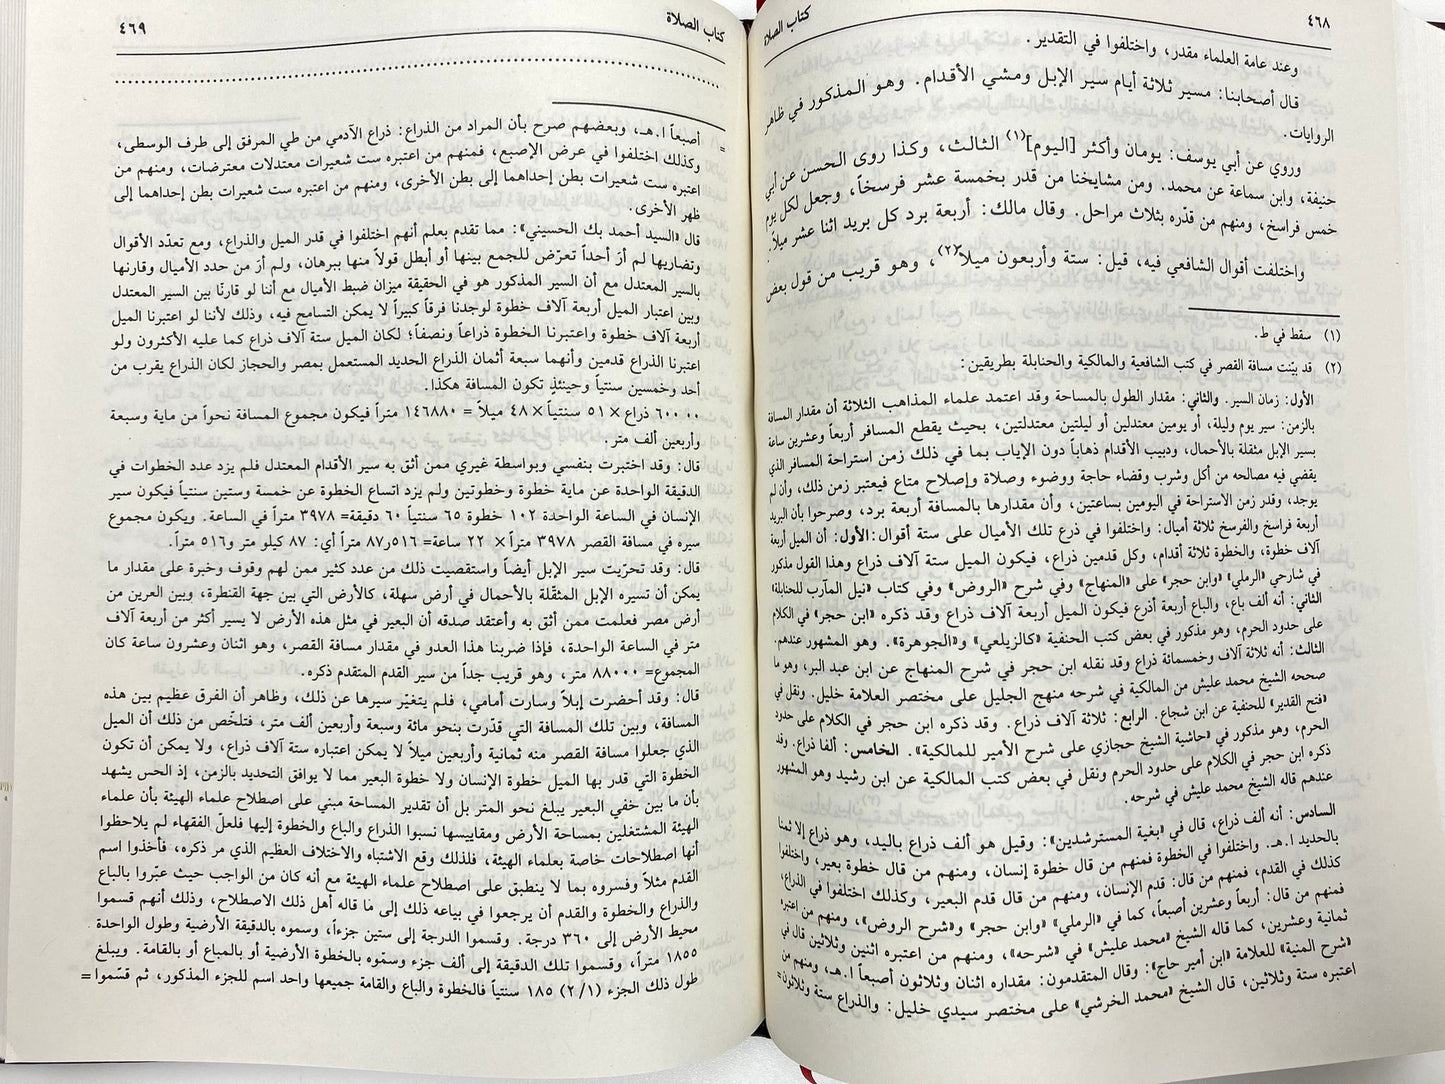 ٤٦٨
كتاب الصلاة
وعند عامة العلماء مقدر، واختلفوا في التقدير.
قال أصحابنا: مسير ثلاثة أيام سير الإبل ومشي الأقدام. وهو المذكور في ظاهر
الروايات.
وروي عن أبي يوسف: يومان وأكثر [اليوم](١) الثالث، وكذا روى الحسن عن أبي
حنيفة، وابن سماعة عن محمد. ومن مشايخنا من قدر بخمسة عشر فرسخاً، وجعل لكل يوم
خمس فراسخ، ومنهم من قدّره بثلاث مراحل. وقال مالك: أربعة برد كل بريد اثنا عشر ميلاً.
واختلفت أقوال الشافعي فيه، قيل: ستة وأربعون ميلاً(٢)، وهو قريب من قول بعض
(١) سقط في ط.
(٢) قد بيّنت مسافة القصر في كتب الشافعية والمالكية والحنابلة بطريقين:
الأول: زمان السير. والثاني: مقدار الطول بالمساحة وقد اعتمد علماء المذاهب الثلاثة أن مقدار المسافة
بالزمن: سير يوم وليلة، أو يومين معتدلين أو ليلتين معتدلتين، بحيث يقطع المسافر أربعاً وعشرين ساعة
بسير الإبل مثقلة بالأحمال، ودبيب الأقدام ذهاباً دون الإياب بما في ذلك زمن استراحة المسافر الذي
يقضي فيه مصالحه من أكل وشرب وقضاء حاجة ووضوء وصلاة وإصلاح متاع فيعتبر زمن ذلك، وأن لم
يوجد، وقدر زمن الاستراحة في اليومين بساعتين، وأن مقدارها بالمسافة أربعة برد، وصرحوا بأن البريد
أربعة فراسخ والفرسخ ثلاثة أميال: واختلفوا في ذرع تلك الأميال على ستة أقوال: الأول: أن الميل أربعة
آلاف خطوة، والخطوة ثلاثة أقدام، وكل قدمين ذراع، فيكون الميل ستة آلاف ذراع وهذا القول مذكور
في شارحي «الرملي» «وابن حجر» على «المنهاج» وفي شرح «الروض» وفي كتاب «نيل المآرب للحنابلة»
الثاني: أنه ألف باع، والباع أربعة أذرع فيكون الميل أربعة آلاف ذراع وقد ذكره «ابن حجر» في الكلام
على حدود الحرم، وهو مذكور في بعض كتب الحنفية «كالزيلعي» و«الجوهرة». وهو المشهور عندهم.
الثالث: أنه ثلاثة آلاف وخمسمائة ذراع وقد نقله ابن حجر في شرح المنهاج عن ابن عبد البر، وهو ما
صححه الشيخ محمد عليش من المالكية في شرحه منهج الجليل على مختصر العلامة خليل. ونقل في
«فتح القدير» للحنفية عن ابن شجاع. الرابع: ثلاثة آلاف ذراع. وقد ذكره ابن حجر في الكلام على حدود
الحرم، وهو مذكور في «حاشية الشيخ حجازي على شرح الأمير للمالكية». الخامس: ألفا ذراع. وقد
ذكره ابن حجر في الكلام على حدود الحرم ونقل في بعض كتب المالكية عن ابن رشيد وهو المشهور
عندهم قاله الشيخ محمد عليش في شرحه.
السادس: أنه ألف ذراع، قال في «بغية المسترشدين»: وقيل هو ألف ذراع باليد، وهو ذراع إلا ثمنا
بالحديد ا.هـ. واختلفوا في الخطوة فمنهم من قال خطوة إنسان، ومنهم من قال خطوة بعير، واختلفوا
كذلك في القدم، فمنهم من قال: قدم الإنسان، ومنهم من قال قدم البعير، وكذلك اختلفوا في الذراع،
فمنهم من قال: أربعاً وعشرين أصبعاً، كما في «الرملي» «وابن حجر» و«شرح الروض»، ومنهم من اعتبره
ثمانية وعشرين، كما قاله الشيخ «محمد عليش» في «شرحه»، ومنهم من اعتبره اثنين وثلاثين قال في
«شرح المنية» للعلامة «ابن أمير حاج»: وقال المتقدمون: مقداره اثنان وثلاثون أصبعاً ا.هـ، ومنهم من
اعتبره ستة وثلاثين، قال الشيخ «محمد الخرشي» على مختصر سيدي خليل: والذراع ستة وثلاثون=
كتاب الصلاة
٤٦٩
= أصبعاً ا.هـ، وبعضهم صرح بأن المراد من الذراع: ذراع الآدمي من طي المرفق إلى طرف الوسطى،
وكذلك اختلفوا في عرض الإصبع، فمنهم من اعتبره ست شعيرات معتدلات معترضات، ومنهم من
اعتبره ست شعيرات بطن إحداهما إلى بطن الأخرى، ومنهم من اعتبره ست شعيرات بطن إحداهما إلى
ظهر الأخرى.
قال «السيد أحمد بك الحسيني»: مما تقدم يعلم أنهم اختلفوا في قدر الميل والذراع، ومع تعدّد الأقوال
وتضاربها لم أرَ أحداً تعرّض للجمع بينها أو أبطل قولاً منها ببرهان، ولم أرَ من حدد الأميال وقارنها
بالسير المعتدل مع أن السير المذكور هو في الحقيقة ميزان ضبط الأميال مع أننا لو قارنّا بين السير المعتدل
وبين اعتبار الميل أربعة آلاف خطوة لوجدنا فرقاً كبيراً لا يمكن التسامح فيه، وذلك لأننا لو اعتبرنا الميل
أربعة آلاف خطوة واعتبرنا الخطوة ذراعاً ونصفاً؛ لكان الميل ستة آلاف ذراع كما عليه الأكثرون ولو
اعتبرنا الذراع قدمين وأنهما سبعة أثمان الذراع الحديد المستعمل بمصر والحجاز لكان الذراع يقرب من
أحد وخمسين سنتياً وحينئذٍ تكون المسافة هكذا.
٦٠٠ ٠٠ ذراع × ٥١ سنتياً × ٤٨ ميلاً = ١٤٦٨٨٠ متراً فيكون مجموع المسافة نحواً من ماية وسبعة
وأربعين ألف متر.
قال: وقد اختبرت بنفسي وبواسطة غيري ممن أثق به سير الأقدام المعتدل فلم يزد عدد الخطوات في
الدقيقة الواحدة عن ماية خطوة وخطوتين ولم يزد اتساع الخطوة عن خمسة وستين سنتياً فيكون سير
الإنسان في الساعة الواحدة ١٠٢ خطوة ٦٥ سنتياً ٦٠ دقيقة= ٣٩٧٨ متراً في الساعة. ويكون مجموع
سيره في مسافة القصر ٣٩٧٨ متراً × ٢٢ ساعة= ٨٧٫٥١٦ متراً أي: ٨٧ كيلو متر و٥١٦ متراً.
قال: وقد تحرّيت سير الإبل أيضاً واستقصيت ذلك من عدد كثير ممن لهم وقوف وخبرة على مقدار ما
يمكن أن تسيره الإبل المثقّلة بالأحمال في أرض سهلة، كالأرض التي بين جهة القنطرة، وبين العرين من
أرض مصر فعلمت ممن أثق به وأعتقد صدقه أن البعير في مثل هذه الأرض لا يسير أكثر من أربعة آلاف
متر في الساعة الواحدة، فإذا ضربنا هذا العدو في مقدار مسافة القصر، وهو اثنان وعشرون ساعة كان
المجموع= ٨٨٠٠٠ متر، وهو قريب جداً من سير القدم المتقدم ذكره.
قال: وقد أحضرت إبلاً وسارت أمامي، فلم يتغيّر سيرها عن ذلك، وظاهر أن الفرق عظيم بين هذه
المسافة، وبين تلك المسافة التي قدّرت بنحو مائة وسبعة وأربعين ألف متر، فتلخّص من ذلك أن الميل
الذي جعلوا مسافة القصر منه ثمانية وأربعين ميلاً لا يمكن اعتباره ستة آلاف ذراع، ولا يمكن أن تكون
الخطوة التي قدر بها الميل خطوة الإنسان ولا خطوة البعير مما لا يوافق التحديد بالزمن، إذ الحس يشهد
بأن ما بين خفي البعير يبلغ نحو المتر بل أن تقدير المساحة مبني على اصطلاح علماء الهيئة بأن علماء
الهيئة المشتغلين بمساحة الأرض ومقاييسها نسبوا الذراع والباع والخطوة إليها فلعلّ الفقهاء لم يلاحظوا
أنها اصطلاحات خاصة بعلماء الهيئة، فلذلك وقع الاشتباه والاختلاف العظيم الذي مر ذكره، فأخذوا اسم
القدم مثلاً وفسروه بما لا ينطبق على اصطلاح علماء الهيئة مع أنه كان من الواجب حيث عبّروا بالباع
والذراع والخطوة والقدم أن يرجعوا في بيانه ذلك إلى ما قاله أهل ذلك الاصطلاح، وذلك أنهم قسموا
محيط الأرض إلى ٣٦٠ درجة. وقسموا الدرجة إلى ستين جزءاً، وسموه بالدقيقة الأرضية وطول الواحدة
١٨٥٥ متراً، وقسموا تلك الدقيقة إلى ألف جزء وسمّوه بالخطوة الأرضية أو بالمباع أو بالقامة. ويبلغ
طول ذلك الجزء (٢/١) ١٨٥ سنتياً فالخطوة والباع والقامة جميعها واحد اسم للجزء المذكور، ثم قسّموا=